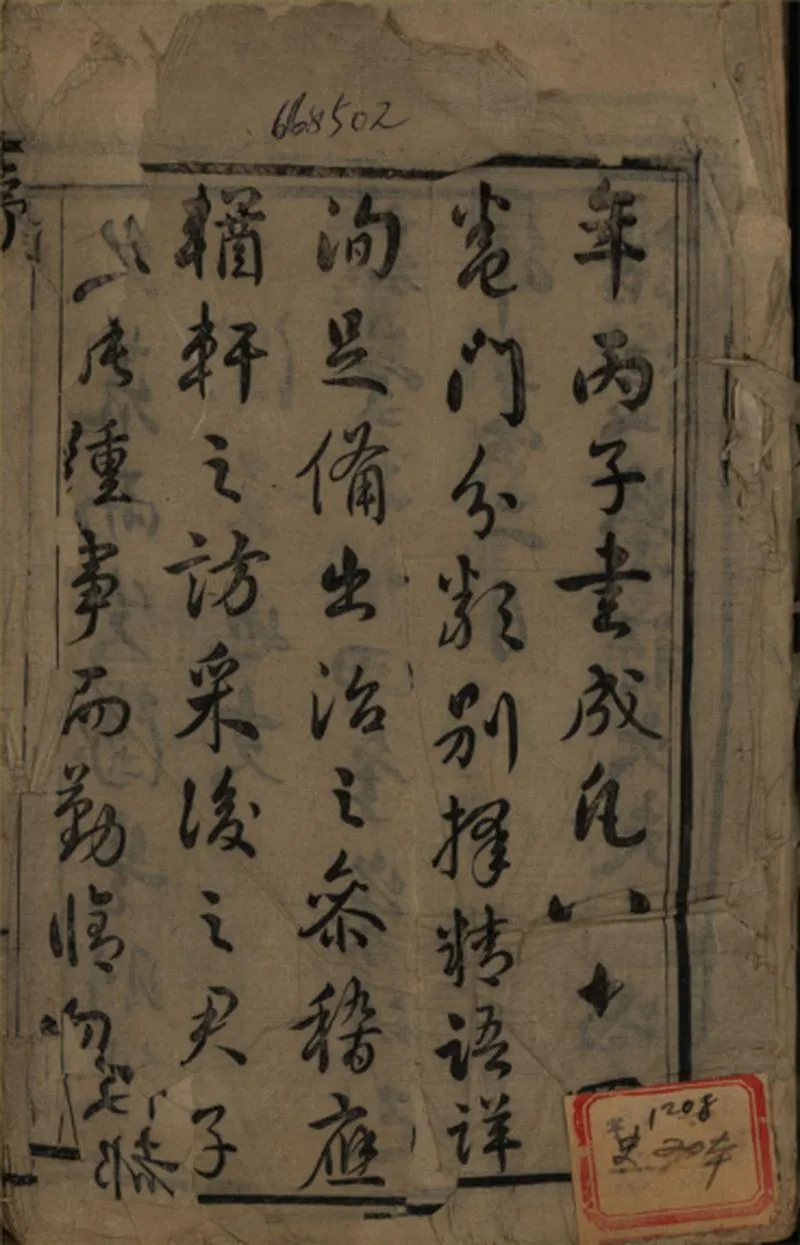 668502
年丙子書成凡八十四
卷門分類別擇精語詳
洵足備出治之參稽應
輶軒之訪采後之君子
踵事而勤脩勿
序
1208
史 20本